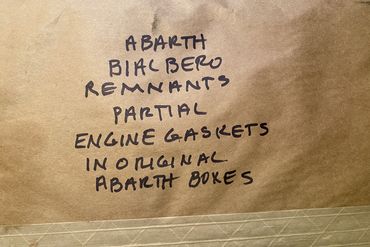 ABARTH
BIALBERO
REMNANTS
PARTIAL
ENGINE GASKETS
IN ORIGINAL
ABARTH BOXES